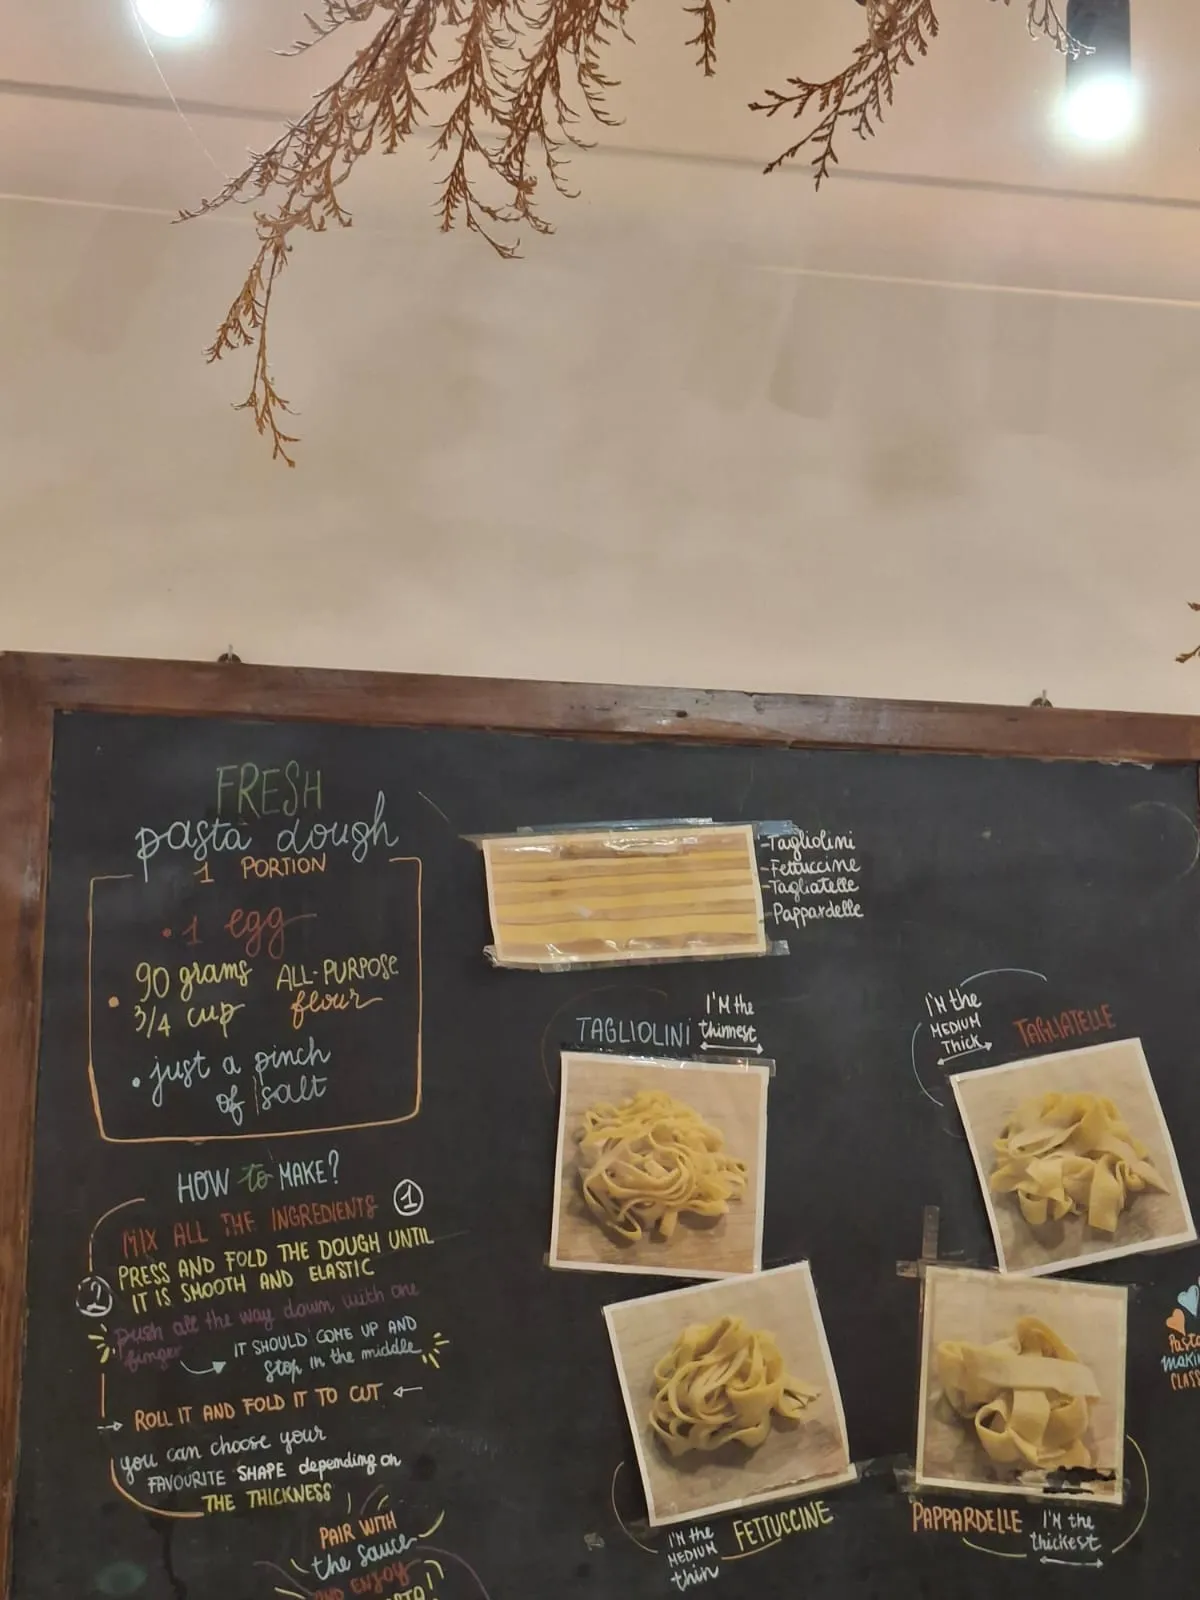 FRESH
pasta dough
1 PORTION
• 1 egg
• 90 grams ALL-PURPOSE
3/4 cup flour
• just a pinch
of salt
HOW to MAKE?
MIX ALL THE INGREDIENTS 1
2 PRESS AND FOLD THE DOUGH UNTIL
IT IS SMOOTH AND ELASTIC
push all the way down with one
finger → IT SHOULD COME UP AND
stop in the middle
→ ROLL IT AND FOLD IT TO CUT ←
you can choose your
FAVOURITE SHAPE depending on
THE THICKNESS
PAIR WITH
the sauce
AND ENJOY
-Tagliolini
-Fettuccine
-Tagliatelle
-Pappardelle
TAGLIOLINI
I'M the
thinnest
I'M the
MEDIUM
Thick
TAGLIATELLE
I'M the
MEDIUM
thin
FETTUCCINE
PAPPARDELLE
I'M the
thickest